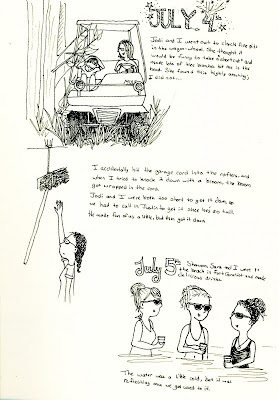 JULY 4th
Jodi and I went out to check fire pit
in the wagon-wheel. She thought it
would be funny to take a shortcut and
made lots of tree branches hit me in the
head. She found this highly amusing,
I did not...
I accidentally hit the garage cord into the rafters, and
when I tried to knock it down with a broom, the broom
got wrapped in the cord.
Jodi and I were both too short to get it down, so
we had to call in Justin to get it since he's so tall.
He made fun of us a little, but then got it down.
July 5th
Shannon, Sara and I went to
the beach in Port and made
delicious drinks.
The water was a little cold, but it was
refreshing once we got used to it.